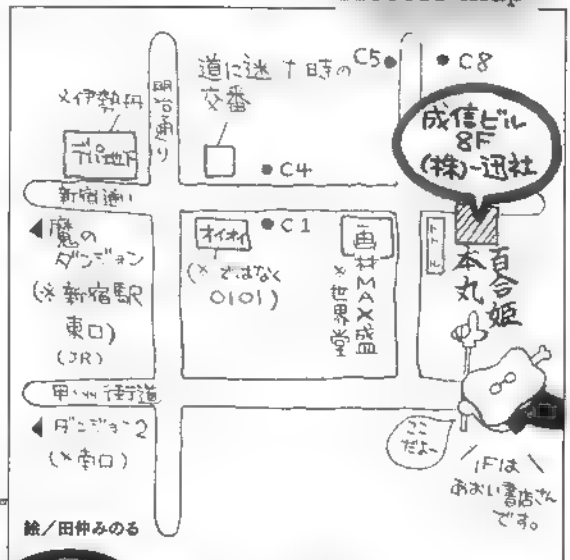 道に迷う時の
交番
C5
C8
×伊勢丹
デパ地下
明治通り
成信ビル
8F
(株)一迅社
C4
新宿通り
◀魔の
ダンジョン
(※新宿駅
東口)
(JR)
オイオイ
C1
(※ではなく
0101)
画材MAX盛
※世界堂
百合姫
本丸
甲州街道
◀ダンジョン2
(※南口)
ここ
だよー
1Fは
あおい書店さん
です。
絵/田仲みのる